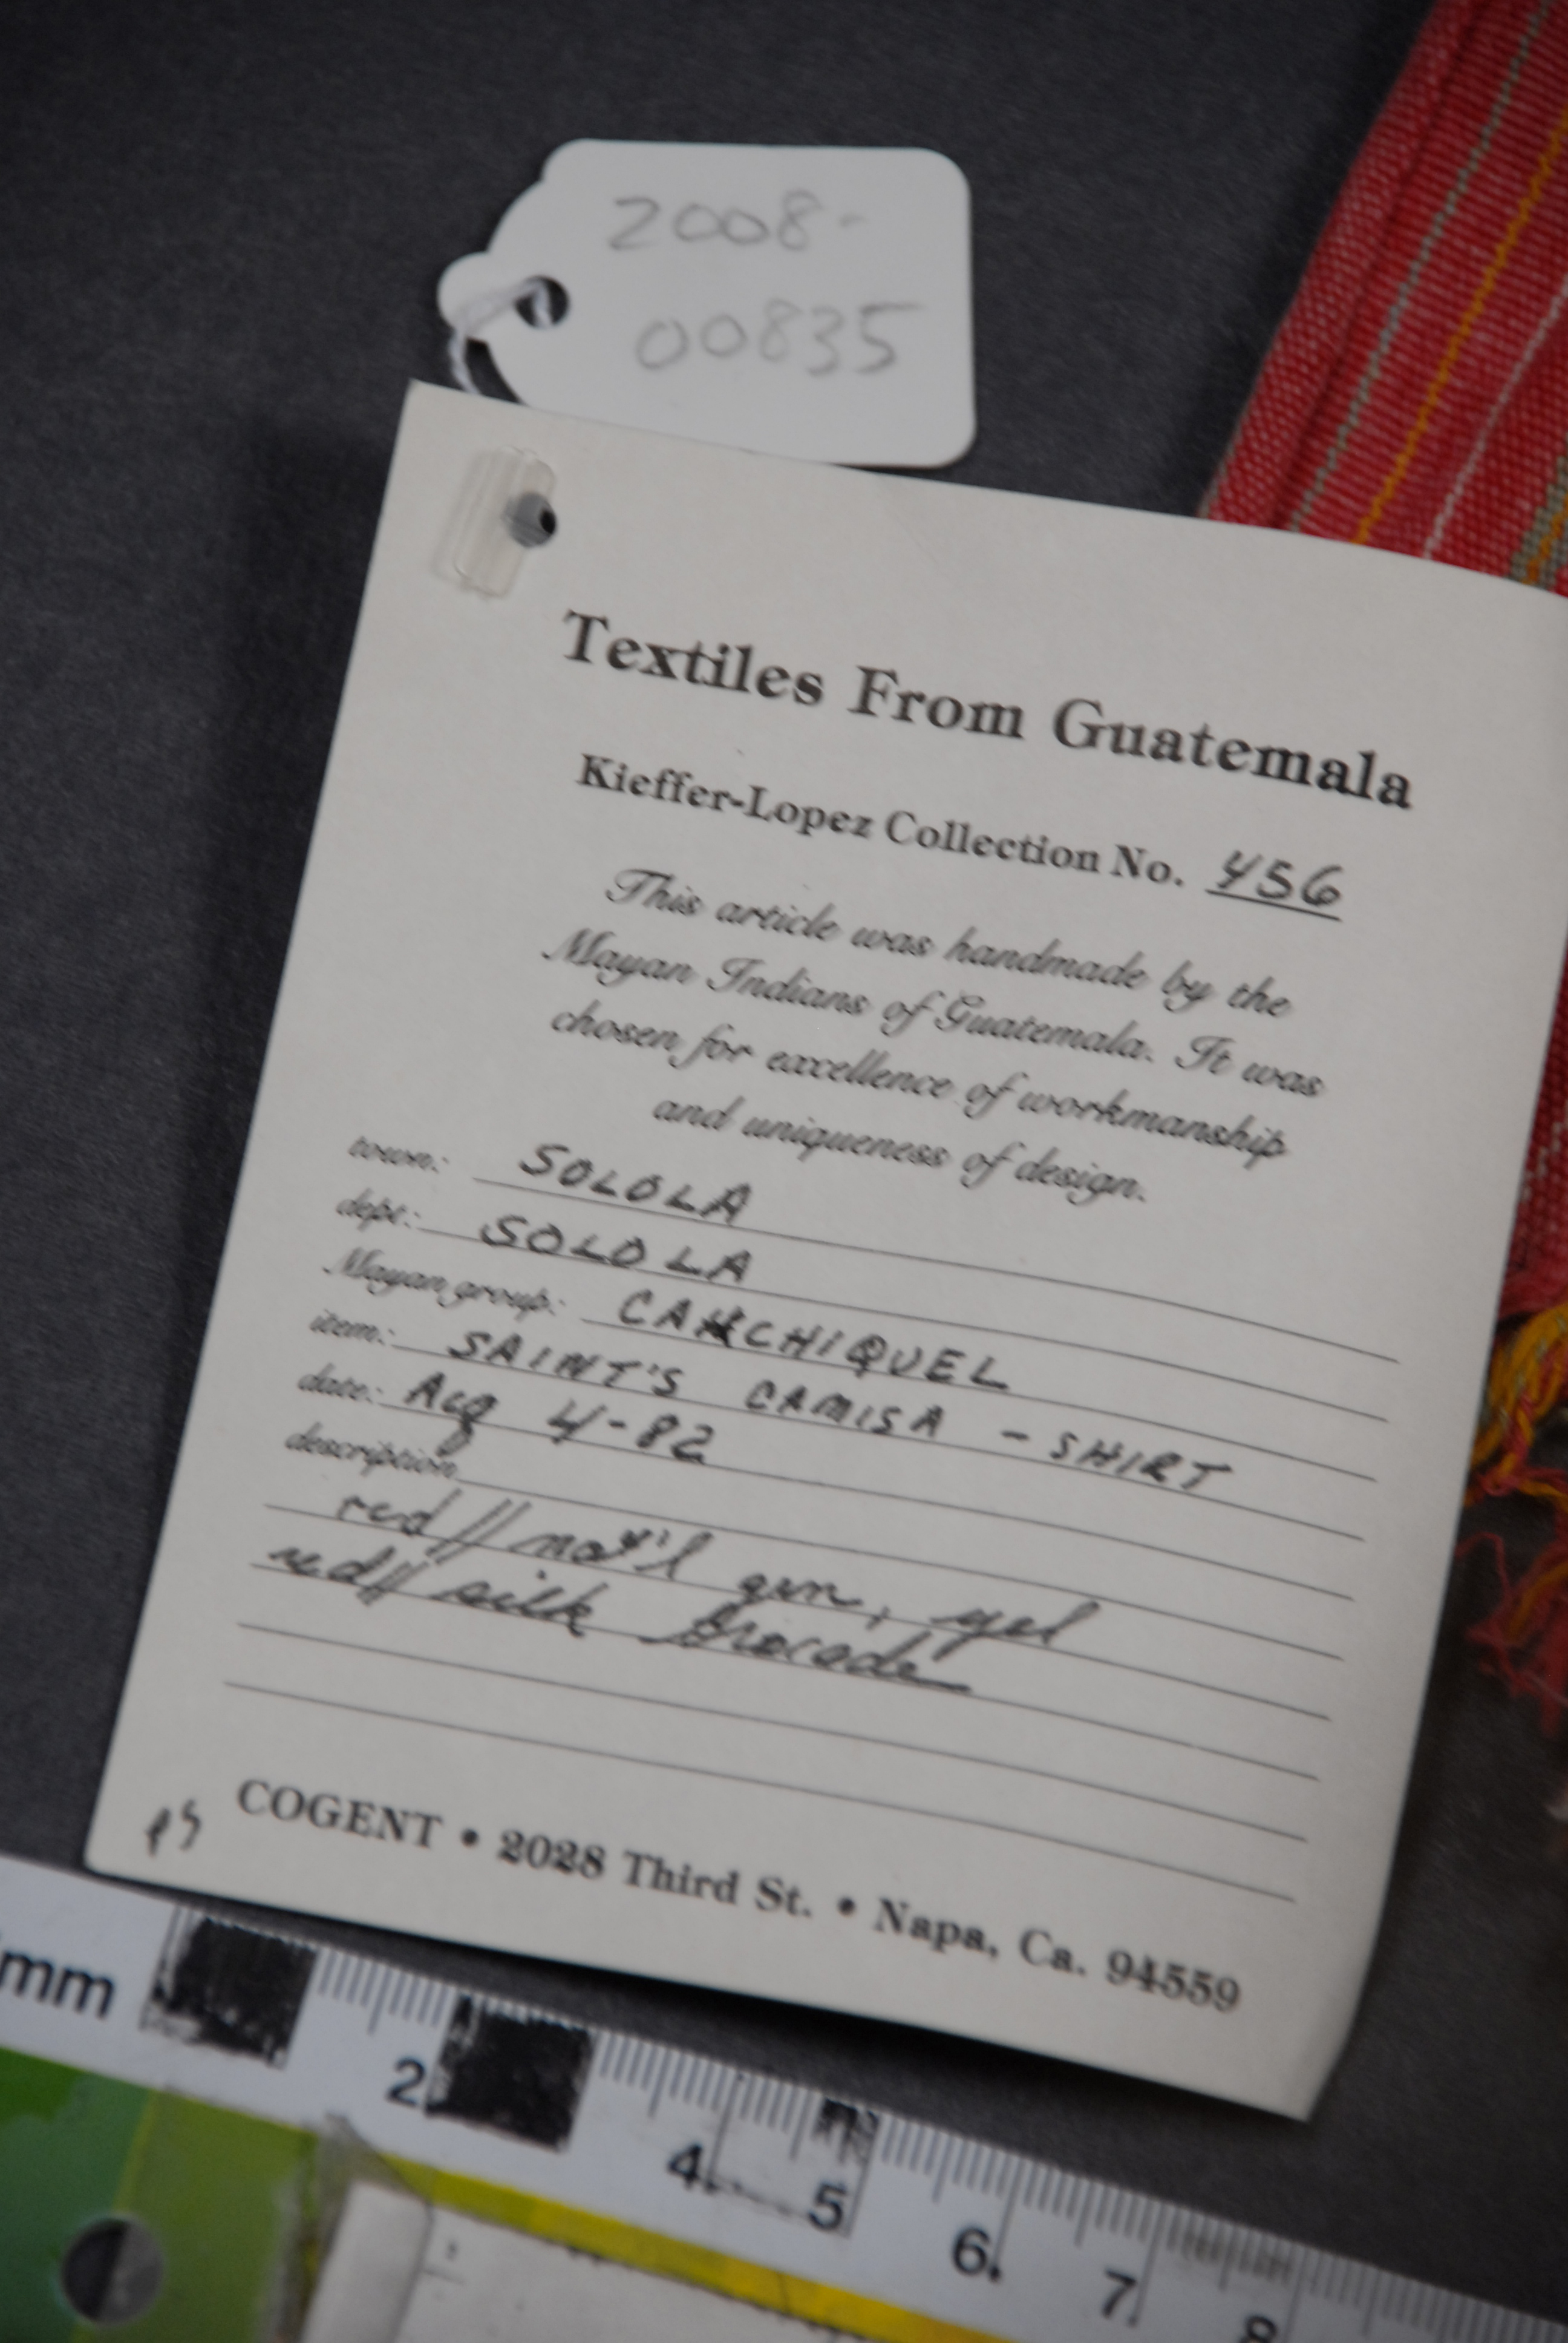 2008-
00835
Textiles From Guatemala
Kieffer-Lopez Collection No. 456
This article was handmade by the
Mayan Indians of Guatemala. It was
chosen for excellence of workmanship
and uniqueness of design.
town: SOLOLA
dept: SOLOLA
Mayan group: CAKCHIQUEL
item: SAINT'S CAMISA - SHIRT
date: Aug 4-82
description
red // nat'l grn, yel
red // silk brocade
COGENT • 2028 Third St. • Napa, Ca. 94559
mm
2
4
5
6
7
8